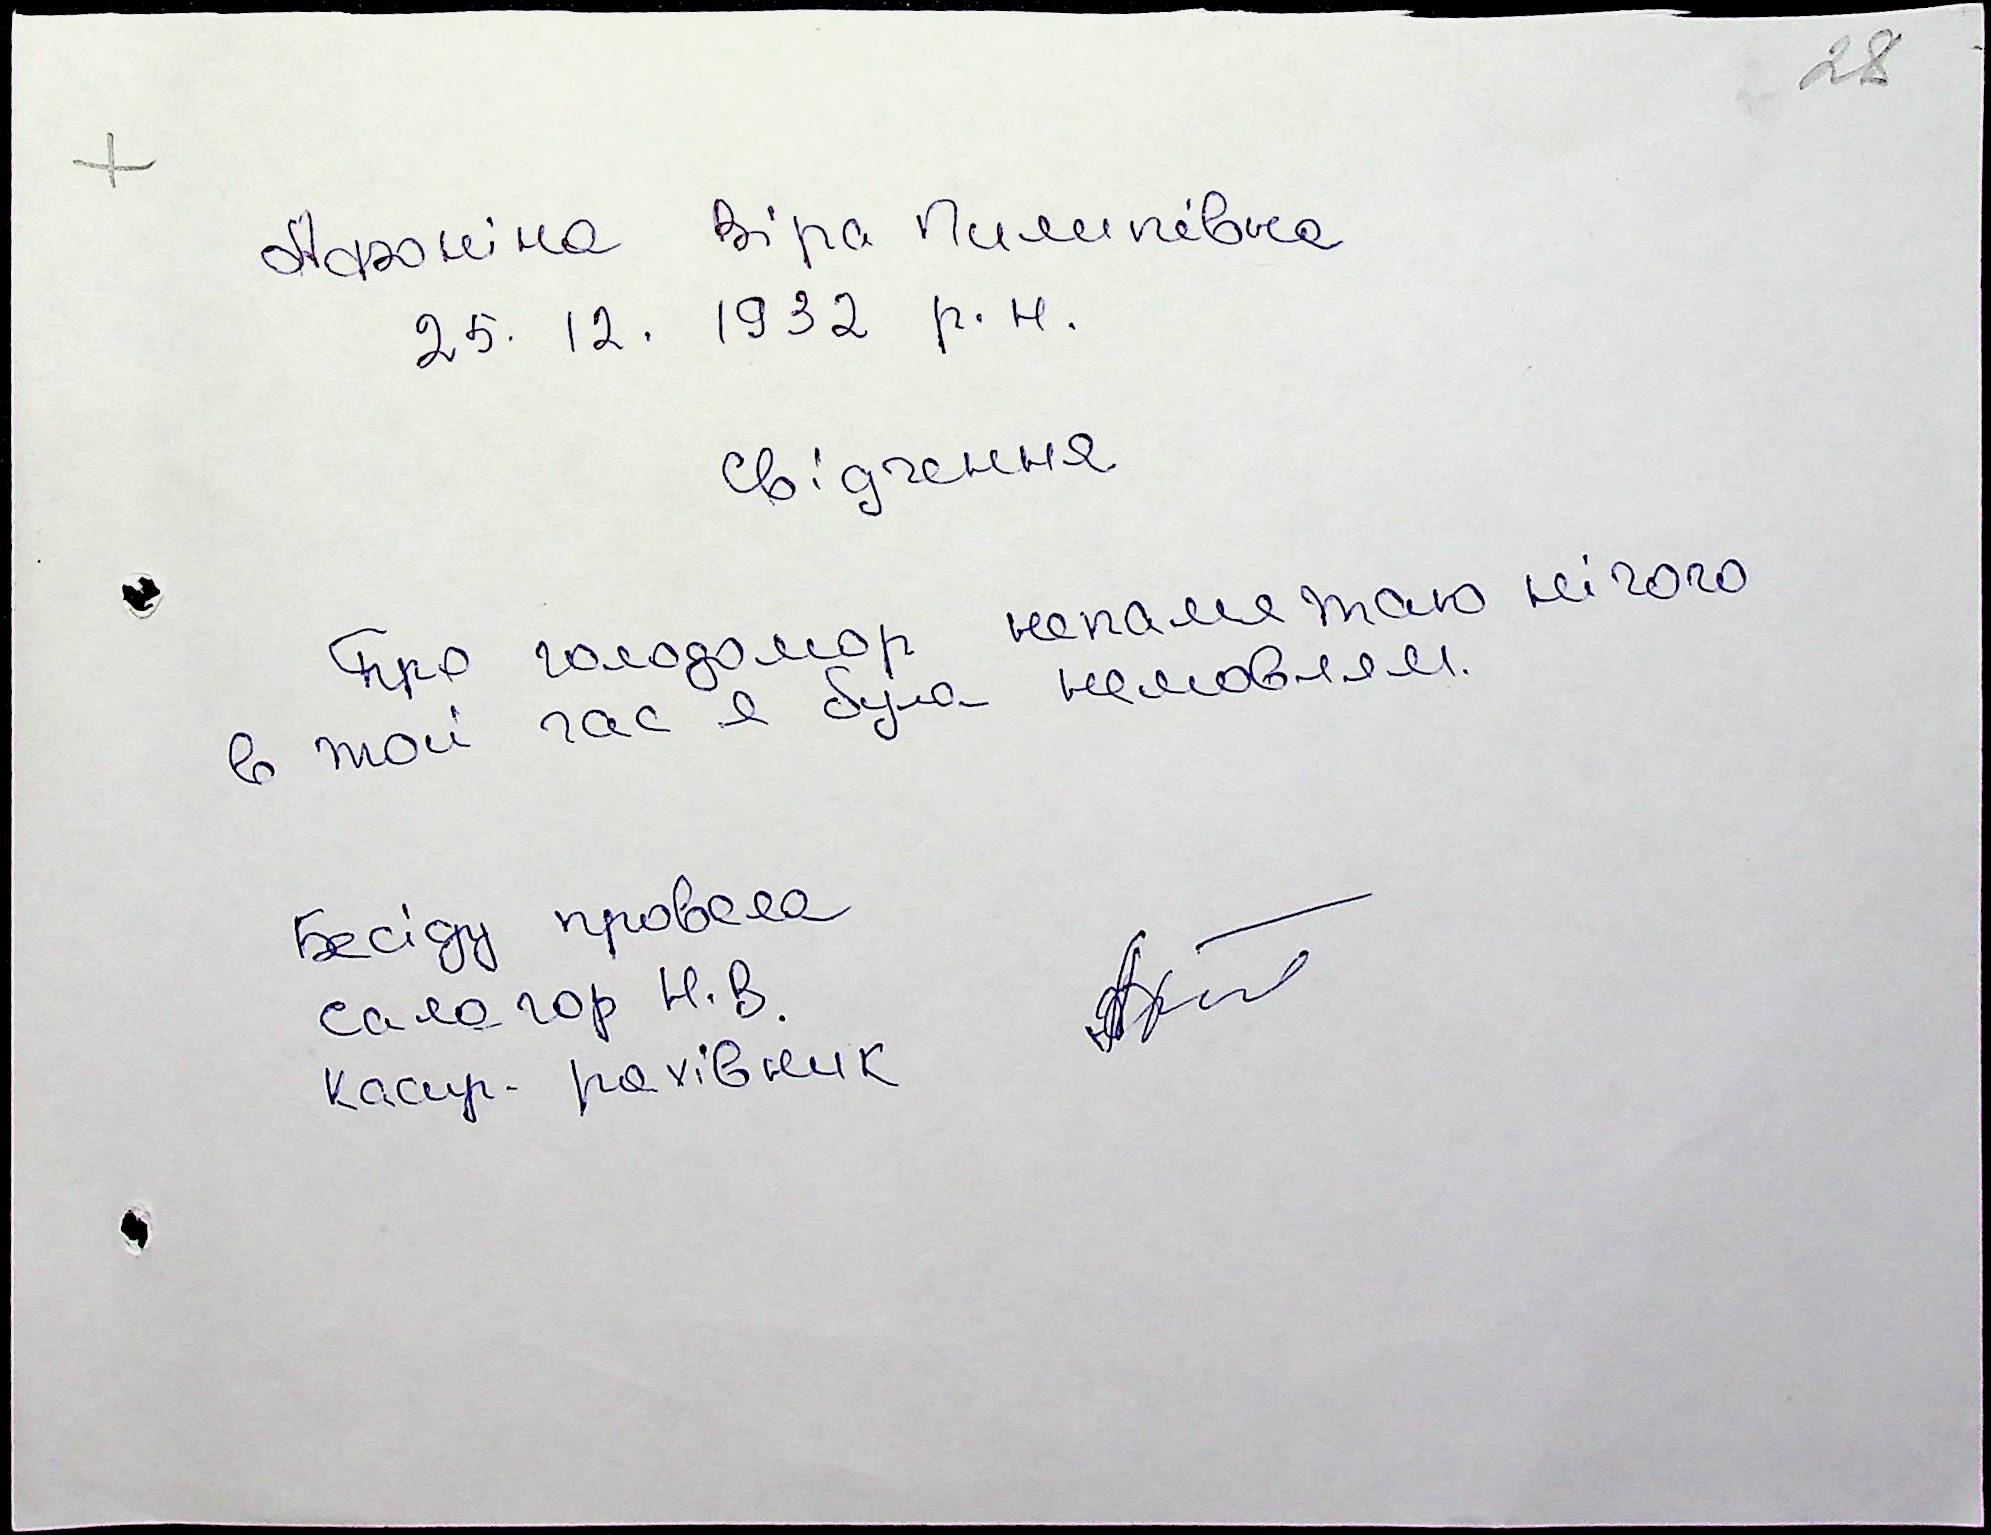 28
+
Афоніна Віра Пилипівна
25. 12. 1932 р. н.
Свідчення
Про голодомор непамятаю нічого
в той час я була немовлям.
Бесіду провела
Салогор Н. В.
касир - рахівник